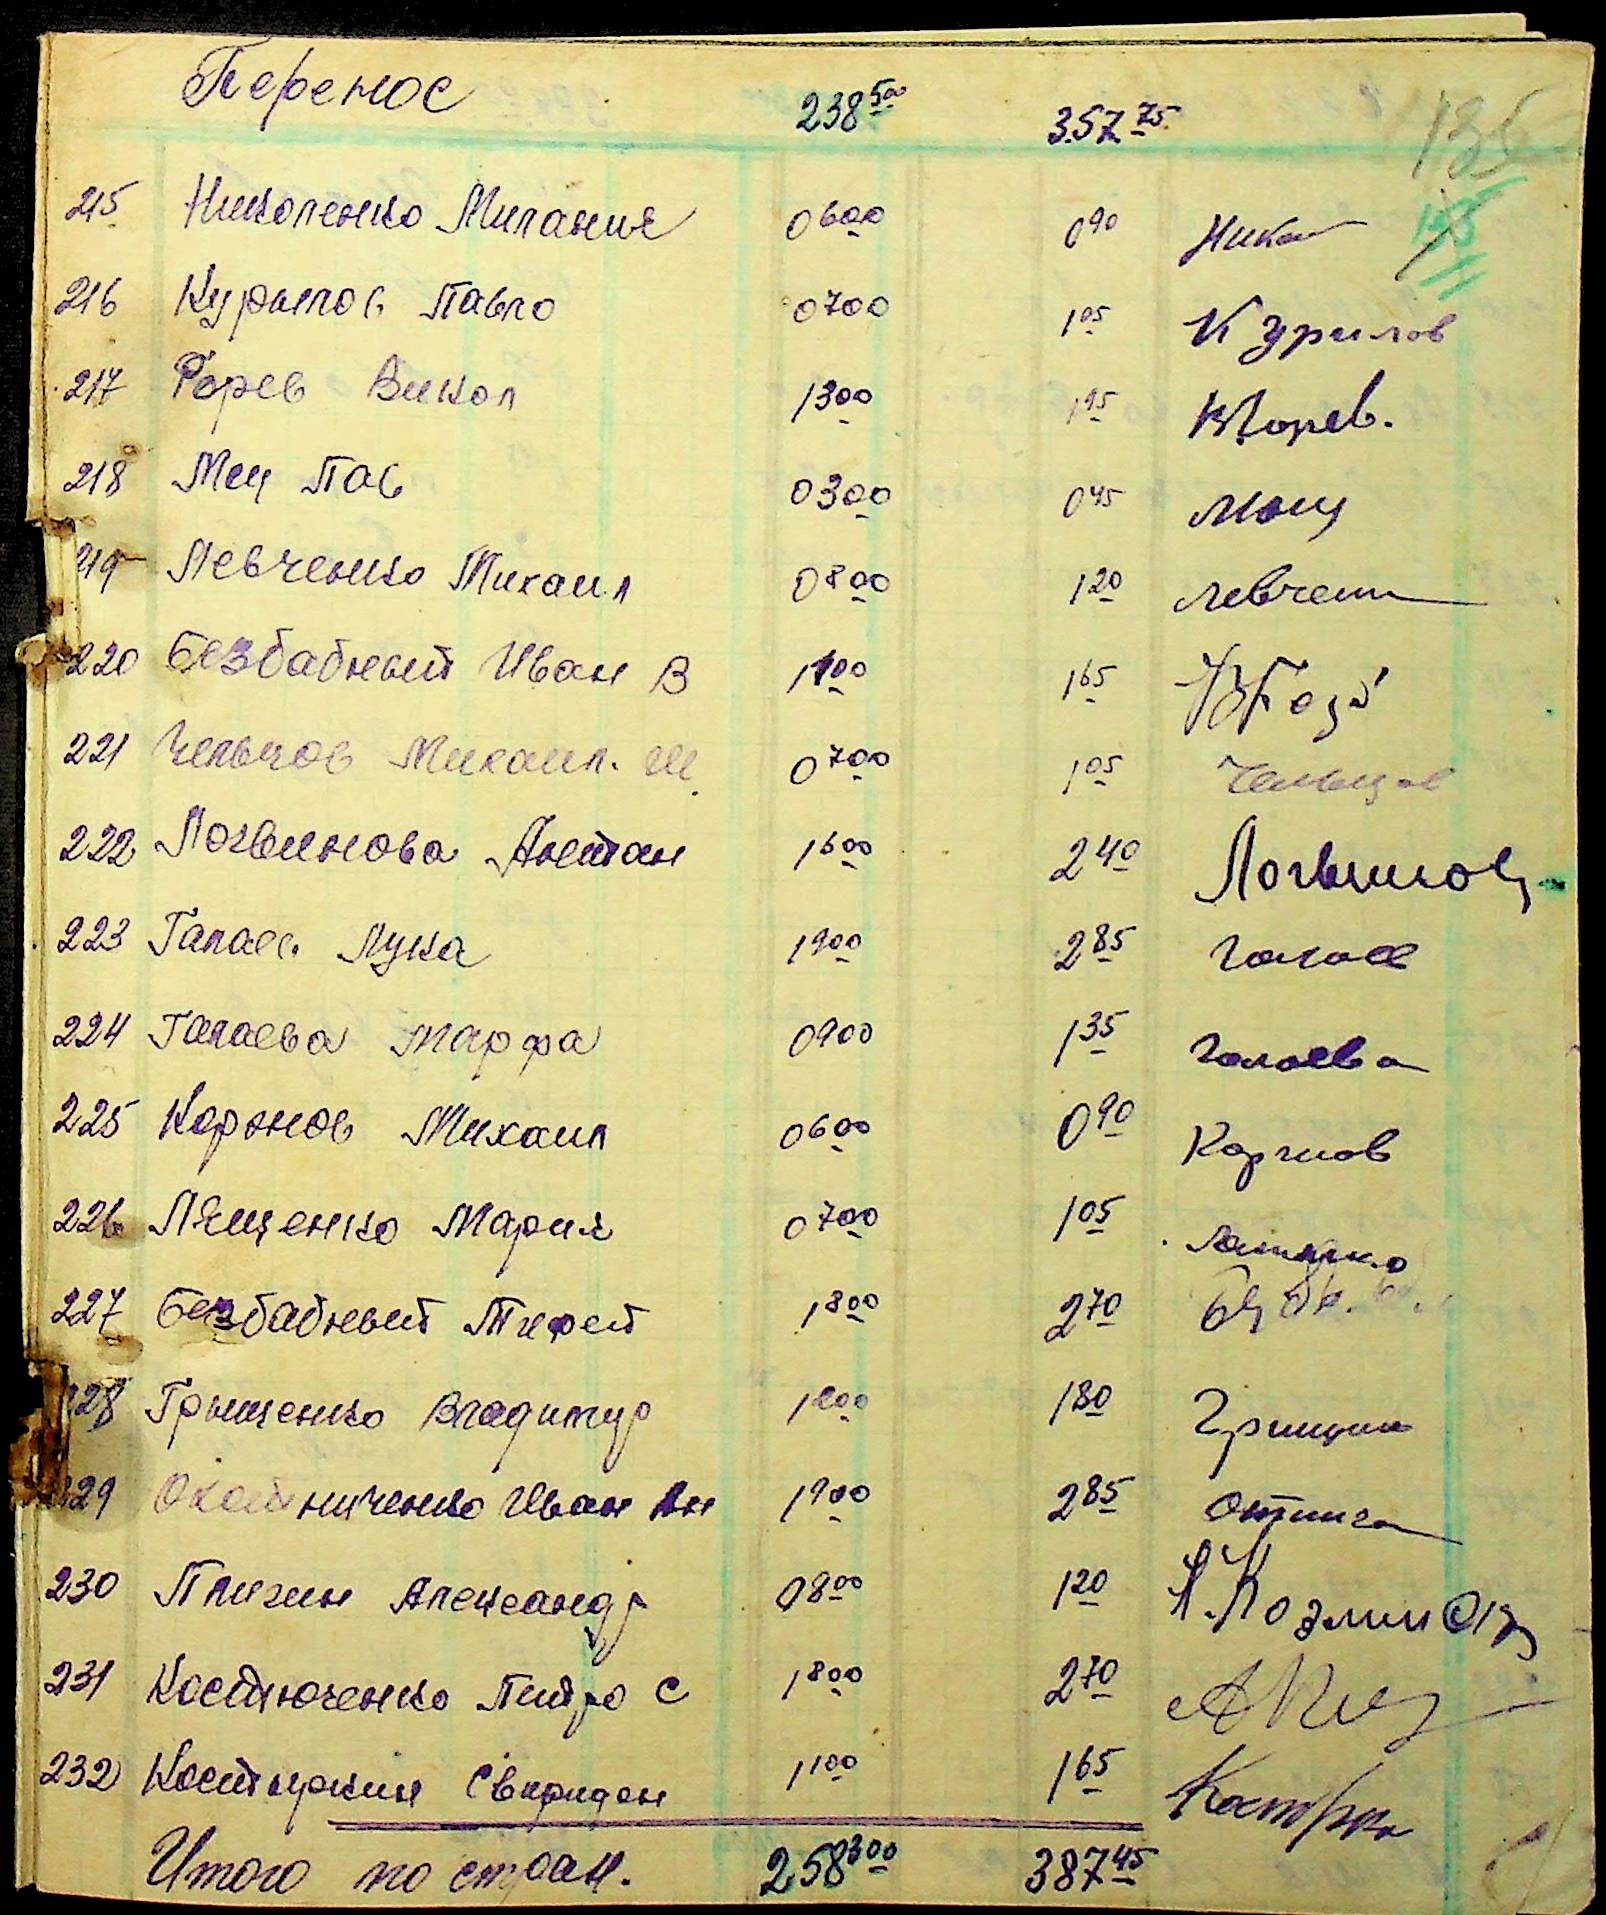 Перенос 238 500 357 75
135
215 Николенко Милания 0600 0 90 Нико
216 Курылов Павло 0700 1 05 Курилов
217 Форев Викол 1300 1 95
218 Мец Пав 0300 0 45 Мец
219 Левченко Михаил 0800 1 20 Левченко
220 Безбабный Иван В 1100 1 65
221 Чельцов Михаил. Ш 0700 1 05 Чельцов
222 Логвинова Анетан 1600 2 40 Логвинов
223 Галаев. Лука 1900 2 85 Галаев
224 Галаева Марфа 0900 1 35 Галаева
225 Коронов Михаил 0600 0 90
226 Лященко Мария 0700 1 05
227 Безбабный Тифей 1800 2 70
228 Грищенко Владимур 1200 1 80
229 Иван 1900 2 85
230 Плигин Александр 0800 1 20
231 Костюченко Питро С 1800 2 70
232 Свиридон 1100 1 65
Итого по стран. 258 300 387 45